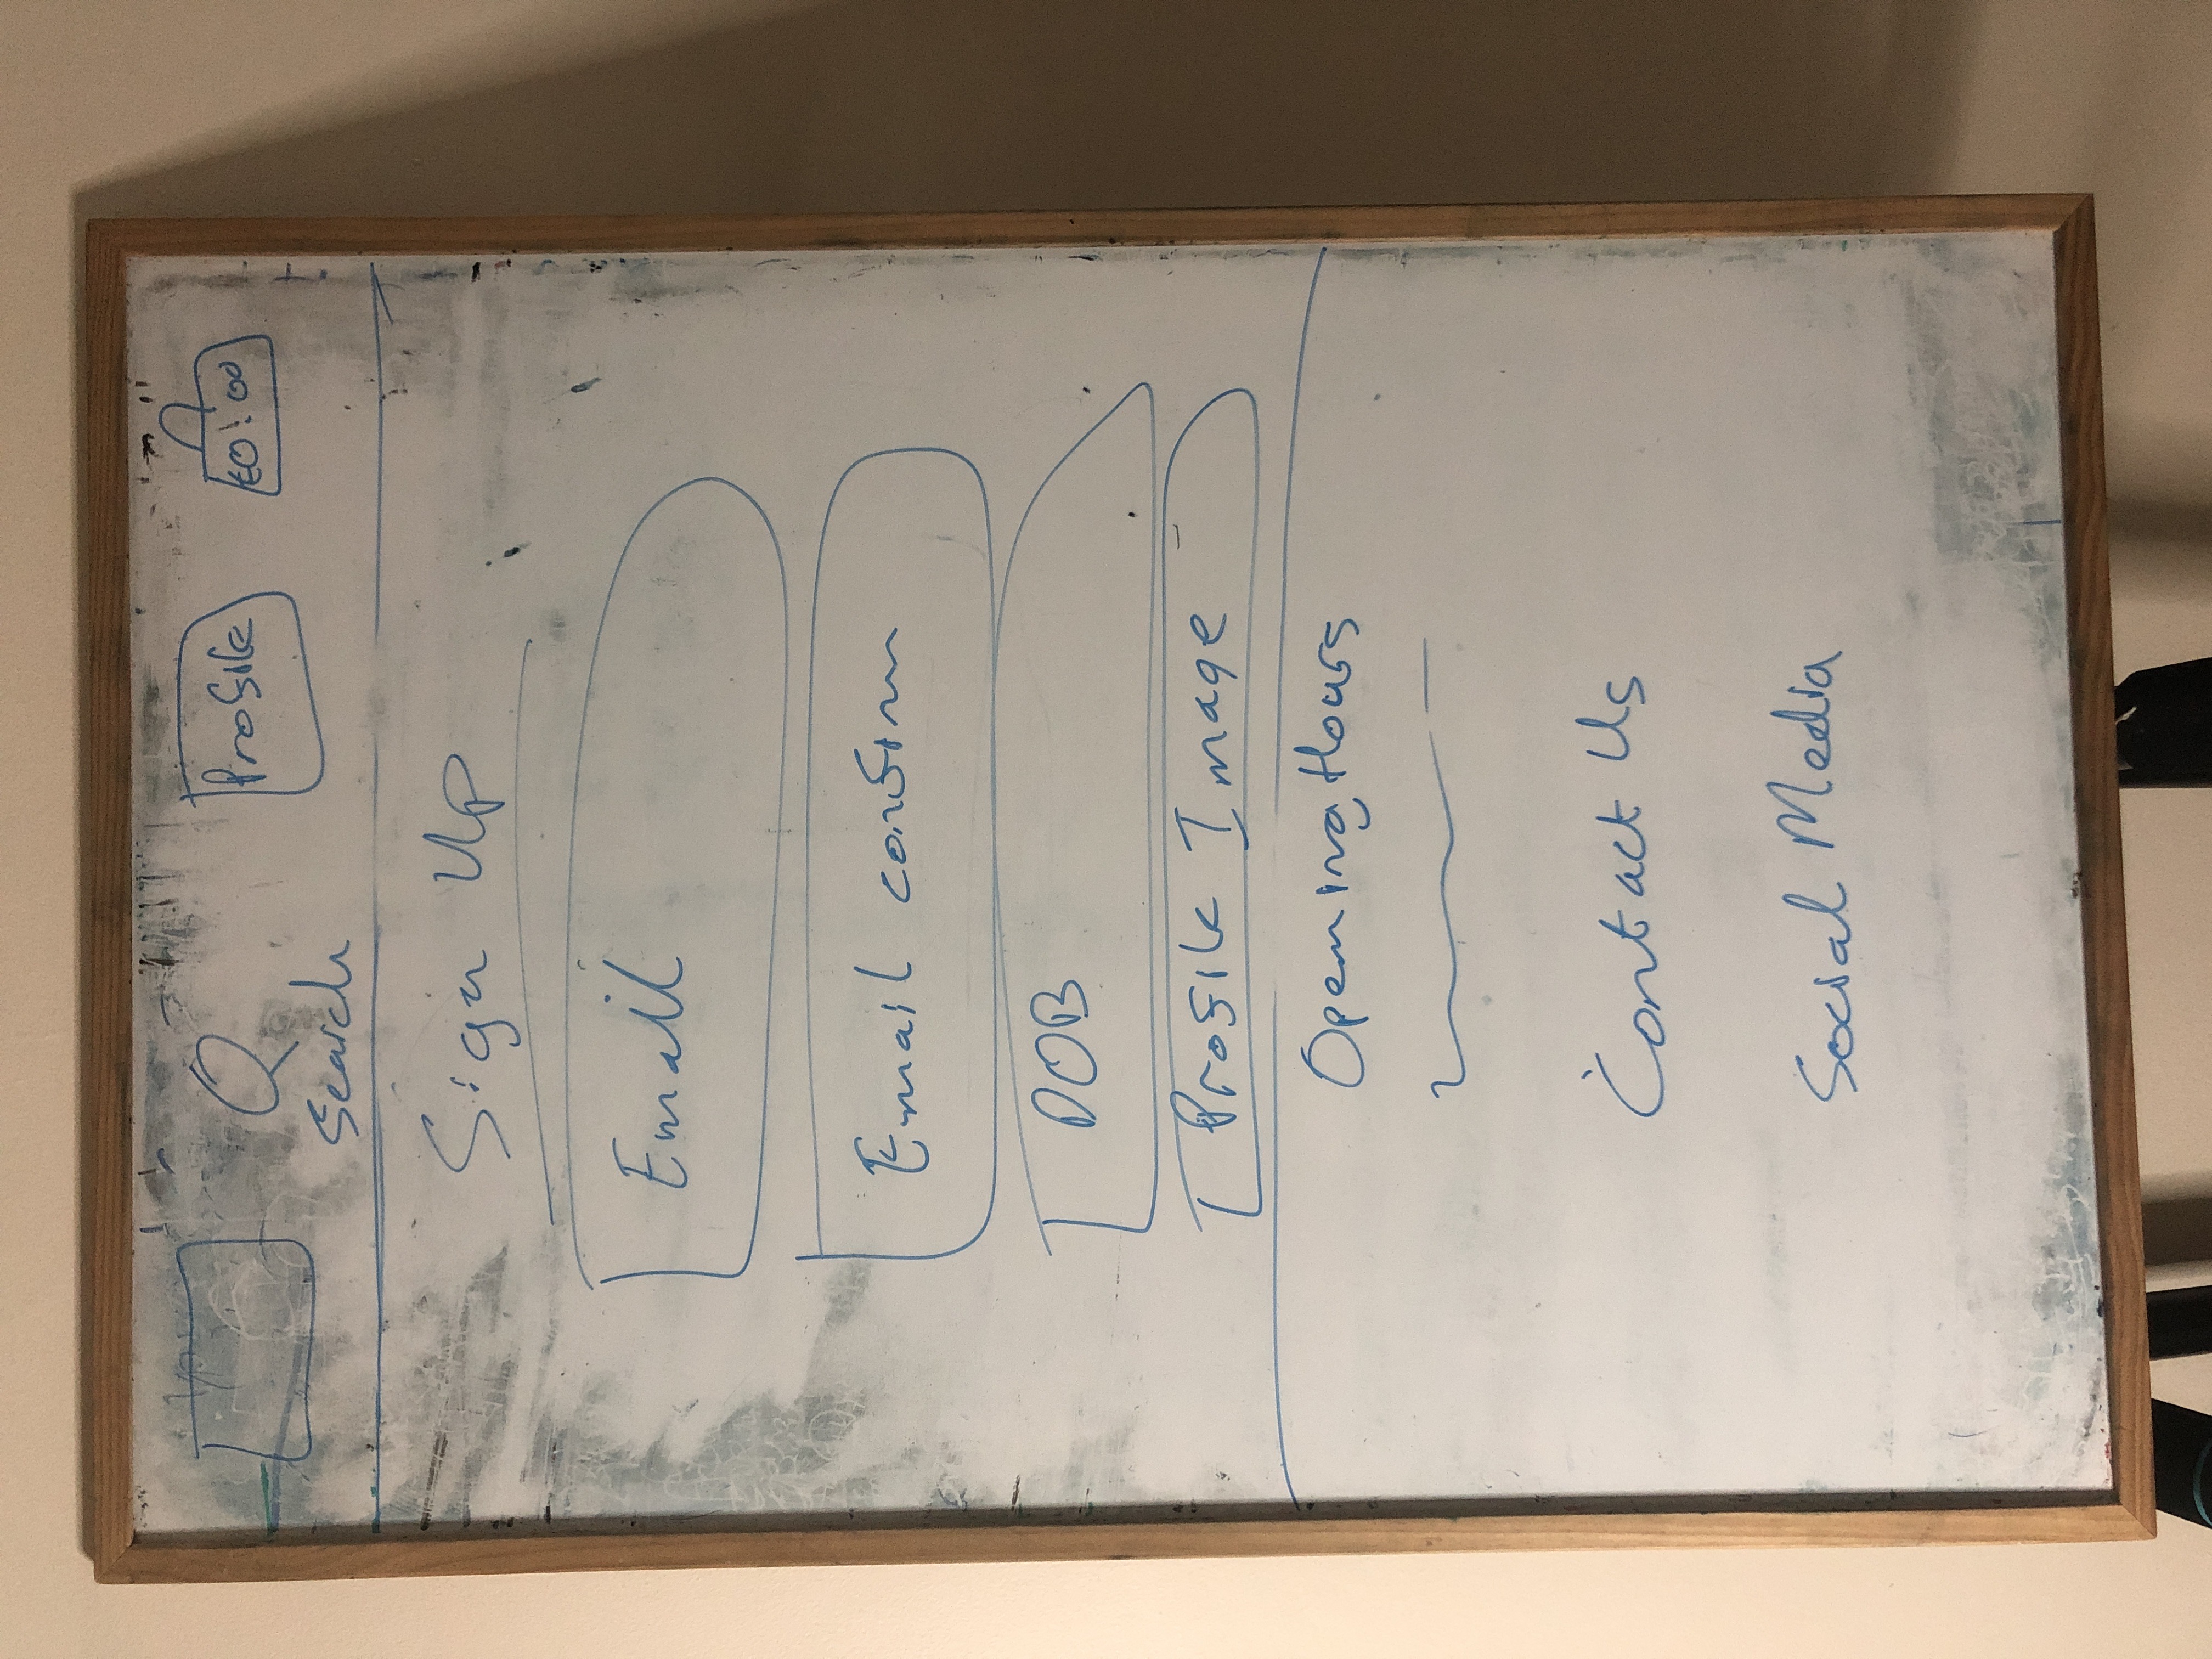 Profile
£0.00
Search
Sign Up
Email
Email confirm
DOB
Profile Image
Opening Hours
Contact Us
Social Media